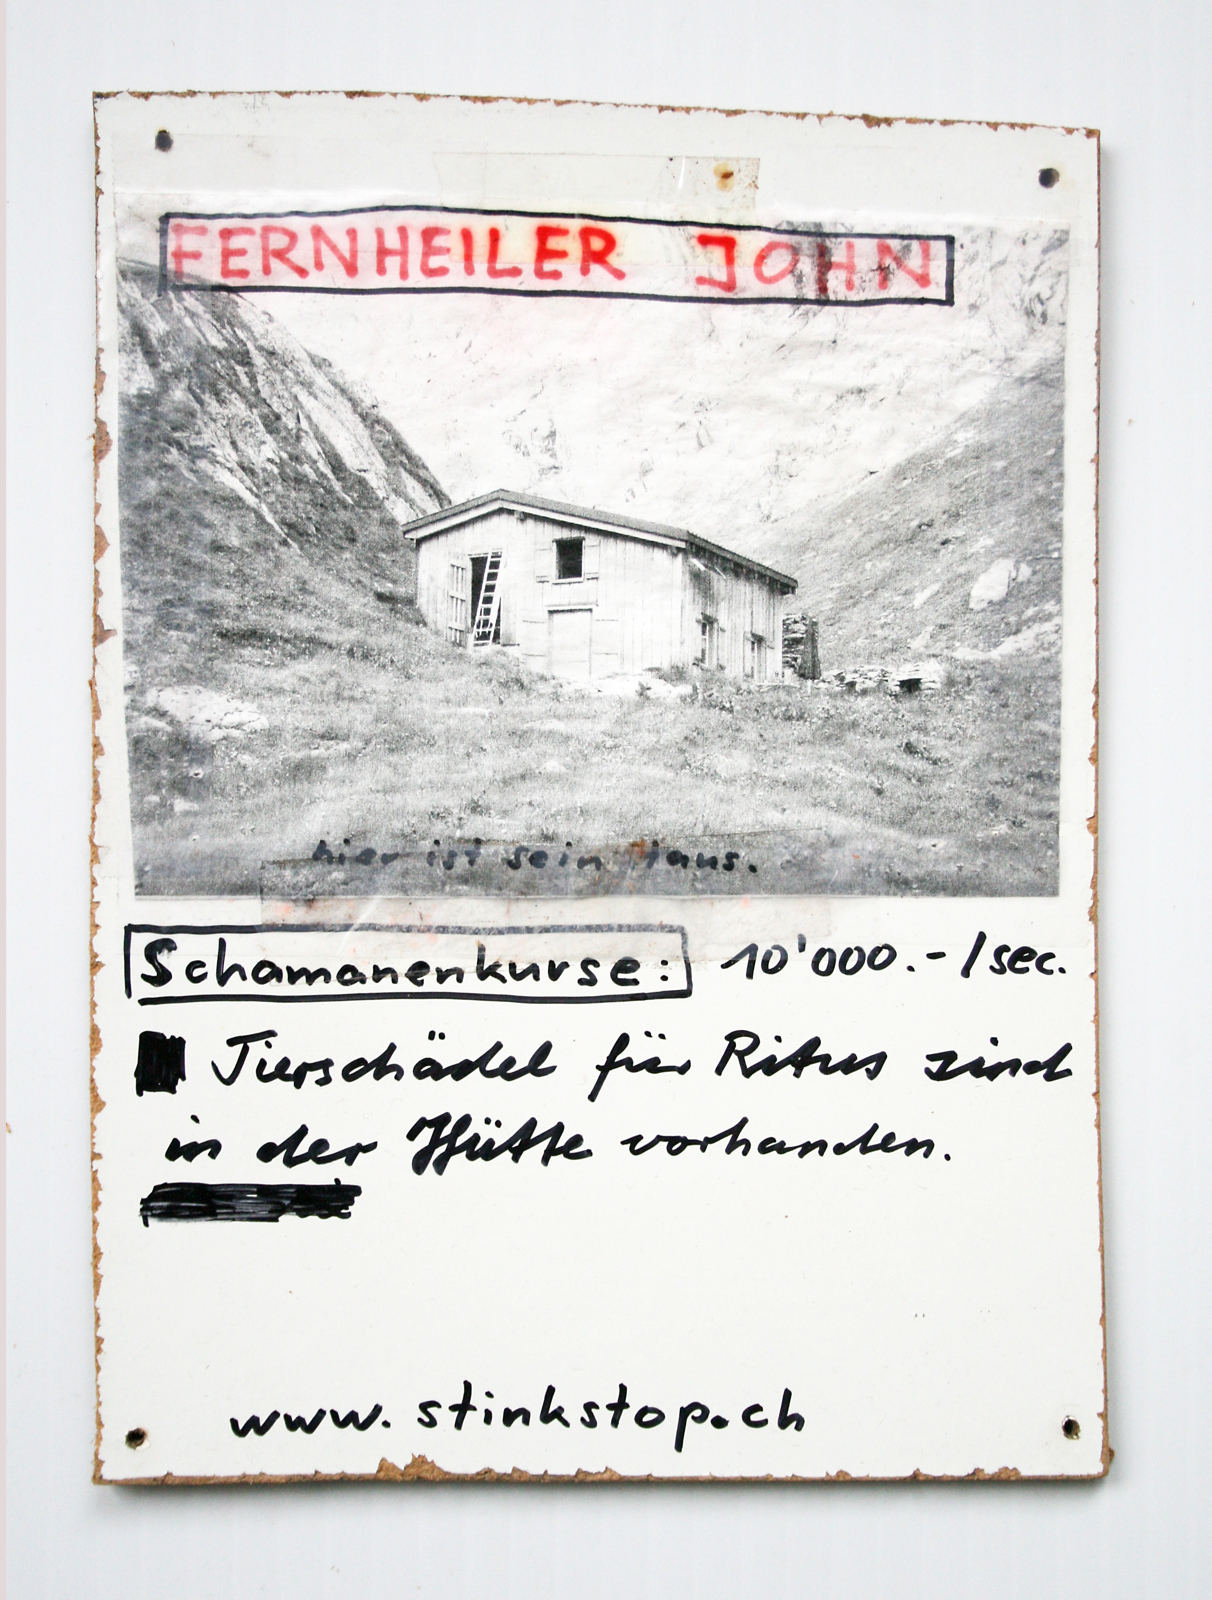 FERNHEILER JOHN
hier ist sein Haus.
Schamanenkurse: 10'000.- / sec.
Tierschädel für Ritus sind
in der Hütte vorhanden.
www.stinkstop.ch